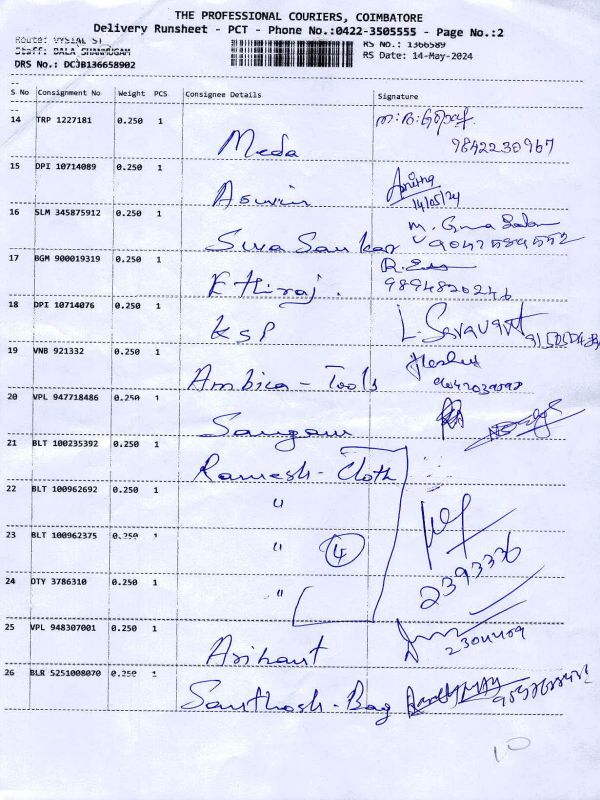 THE PROFESSIONAL COURIERS, COIMBATORE
Delivery Runsheet - PCT - Phone No.:0422-3505555 - Page No.:2
Route: VYSIAL ST
Staff: BALA SHANMUGAM
RS No.: 1366589
DRS No.: DCJB136658902
RS Date: 14-May-2024
S No Consignment No Weight PCS Consignee Details Signature
14 TRP 1227181 0.250 1
Meda 9842230967
15 DPI 10714089 0.250 1
Aswin 14/05/24
16 SLM 345875912 0.250 1
Siva Sankar
17 BGM 900019319 0.250 1
Ethiraj. 9894820246
18 DPI 10714076 0.250 1
KSP L. Saravan
19 VNB 921332 0.250 1
Ambica - Tools
20 VPL 947718486 0.250 1
Sangam
21 BLT 100235392 0.250 1
Ramesh - Cloth
22 BLT 100962692 0.250 1
"
23 BLT 100962375 0.250 1
" 4
2393336
24 OTY 3786310 0.250 1
"
25 VPL 948307001 0.250 1
Arihant
26 BLR 5251008070 0.250 1
Santhosh - Bag